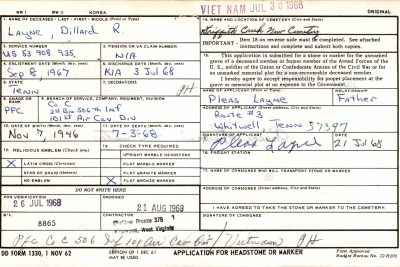 WW I
VIET NAM JUL 30 1968
ORIGINAL
1. NAME OF DECEASED - LAST - FIRST - MIDDLE (Print or Type)
Layne, Dillard R.
14. NAME AND LOCATION OF CEMETERY (City and State)
Griffith Creek New Cemetery
IMPORTANT - Item 18 on reverse side must be completed. See attached
instructions and complete and submit both copies.
2. SERVICE NUMBER
US 53 908 935
3. PENSION OR VA CLAIM NUMBER
N/A
15. This application is submitted for a stone or marker for the unmarked
grave of a deceased member or former member of the Armed Forces of the
U. S., soldier of the Union or Confederate Armies of the Civil War or for
an unmarked memorial plot for a non-recoverable deceased member.
I hereby agree to accept responsibility for proper placement at the
grave or memorial plot at no expense to the Government.
4. ENLISTMENT DATE (Month, day, year)
Sep 8, 1967
KIA 3 Jul 68
6. STATE
TENN
7. DECORATIONS
PH
NAME OF APPLICANT (Print or Type)
RELATIONSHIP
Pleas Layne
Father
8. GRADE
PFC
9. BRANCH OF SERVICE, COMPANY, REGIMENT, DIVISION
Co C
2d Bn 506th Inf
101st Air Cav Div
Route #3
Whitwell Tenn 37397
10. DATE OF BIRTH (Month, day, year)
Nov 7, 1946
11. DATE OF DEATH (Month, day, year)
7-3-68
SIGNATURE OF APPLICANT
DATE
21 Jul 68
12. RELIGIOUS EMBLEM (Check one)
CHECK TYPE REQUIRED
16. FREIGHT STATION
X LATIN CROSS (Christian)
UPRIGHT MARBLE HEADSTONE
STAR OF DAVID (Hebrew)
FLAT MARBLE MARKER
X
FLAT GRANITE MARKER
NO EMBLEM
X FLAT BRONZE MARKER
17. NAME OF CONSIGNEE WHO WILL TRANSPORT STONE OR MARKER
DO NOT WRITE HERE
FOR VERIFICATION
26 JUL 1968
ORDERED
21 AUG 1968
I HAVE AGREED TO TAKE THE STONE OR MARKER TO THE CEMETERY.
B/L
8865
Bronze 378
West Virginia
SIGNATURE OF CONSIGNEE
DD FORM 1330, 1 NOV 62
EDITION OF 1 DEC 61
MAY BE USED.
APPLICATION FOR HEADSTONE OR MARKER
Form Approved
Budget Bureau No. 22-R205